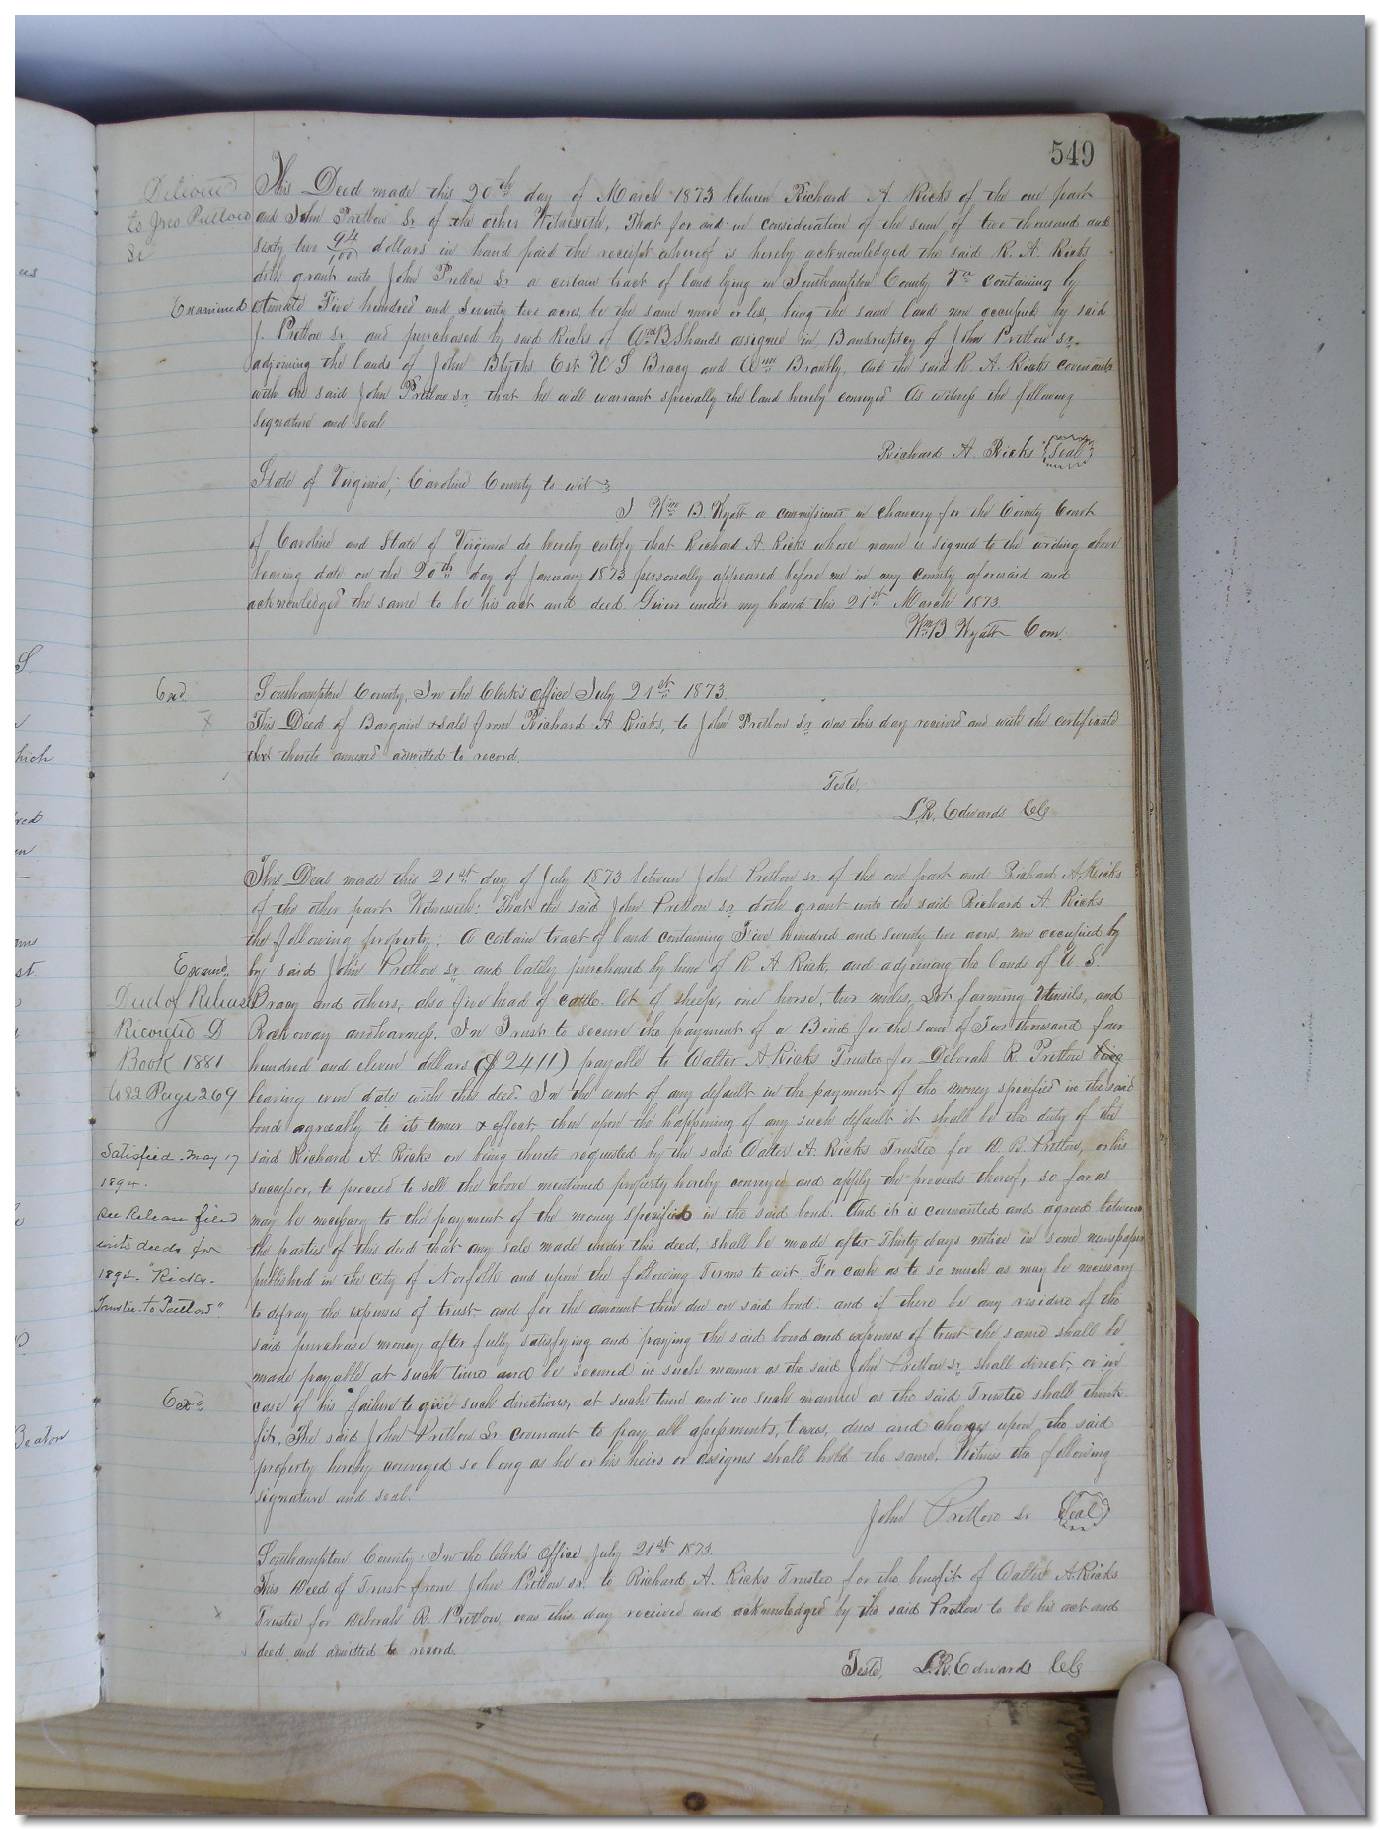 549
Delivered
to Jno Pretlow
Sr
This Deed made this 20th day of March 1873 between Richard A Ricks of the one part
and John Pretlow Sr of the other Witnesseth, That for and in consideration of the sum of two thousand and
sixty two 94/100 dollars in hand paid the receipt whereof is hereby acknowledged the said R. A. Ricks
doth grant unto John Pretlow Sr a certain tract of land lying in Southampton County Va containing by
Examined
estimate Five hundred and Seventy two acres, be the same more or less, being the same land now occupied by said
J. Pretlow sr and purchased by said Ricks of Wm B Shands assignee in Bankruptcy of John Pretlow sr.
adjoining the lands of John Blyths Est W S Bracy and Wm Brantly. And the said R. A. Ricks covenants
with the said John Pretlow sr that he will warrant specially the land hereby conveyed As witness the following
signature and seal
Richard A. Ricks {Seal}
State of Virginia, Caroline County to wit
I Wm B. Wyatt a commissioner in chancery for the County Court
of Caroline and State of Virginia do hereby certify that Richard A Ricks whose name is signed to the writing above
bearing date on the 20th day of January 1873 personally appeared before me in my county aforesaid and
acknowledged the same to be his act and deed. Given under my hand this 21st March 1873.
Wm B Wyatt Com.
Exd
Southampton County, In the Clerk's office July 21st 1873
This Deed of Bargain & sale from Richard A Ricks, to John Pretlow Sr was this day received and with the certificate
thereto annexed admitted to record.
Teste,
L.R. Edwards Clk
This Deed made this 21st day of July 1873 between John Pretlow sr of the one part and Richard A. Ricks
of the other part Witnesseth: That the said John Pretlow sr doth grant unto the said Richard A. Ricks
the following property: A certain tract of land containing Five hundred and seventy two acres, now occupied by
Examd.
by said John Pretlow sr and lately purchased by him of R. A Rick, and adjoining the lands of W. S.
Deed of Release
Bracy and others, also five head of cattle. lot of sheep, one horse, two mules, Lot farming Utensils, and
Recorded D
Rockaway and harness. In Trust to secure the payment of a Bond for the sum of Two thousand four
Book 1881
hundred and eleven dollars ($2411) payable to Walter A Ricks Trustee for Deborah R. Pretlow
to 82 Page 269
bearing even date with this deed. In the event of any default in the payment of the money specified in the said
bond agreeably to its tenor & effect, then upon the happening of any such default it shall be the duty of the
Satisfied May 17
said Richard A. Ricks on being thereto requested by the said Walter A. Ricks Trustee for D. R. Pretlow, or his
1894.
successor, to proceed to sell the above mentioned property hereby conveyed and apply the proceeds thereof, so far as
see Release filed
may be necessary to the payment of the money specified in the said bond. And it is covenanted and agreed between
with deeds for
the parties of this deed that any sale made under this deed, shall be made after Thirty days notice in some newspaper
1894. "Ricks
published in the city of Norfolk and upon the following Terms to wit For cash as to so much as may be necessary
Trustee to Pretlow"
to defray the expenses of trust and for the amount then due on said bond: and if there be any residue of the
said purchase money after fully satisfying and paying the said bond and expenses of trust the same shall be
made payable at such time and be secured in such manner as the said John Pretlow sr shall direct, or in
Exd
case of his failure to give such directions, at such time and in such manner as the said Trustee shall think
fit, The said John Pretlow Sr covenant to pay all assessments, taxes, dues and charges upon the said
property hereby conveyed so long as he or his heirs or assigns shall hold the same. Witness the following
signature and seal.
John Pretlow Sr {Seal}
Southampton County: In the Clerks Office July 21st 1873.
This Deed of Trust from John Pretlow sr. to Richard A. Ricks Trustee for the benefit of Walter A. Ricks
Trustee for Deborah R. Pretlow was this day received and acknowledged by the said Pretlow to be his act and
deed and admitted to record.
Teste, L.R. Edwards Clk